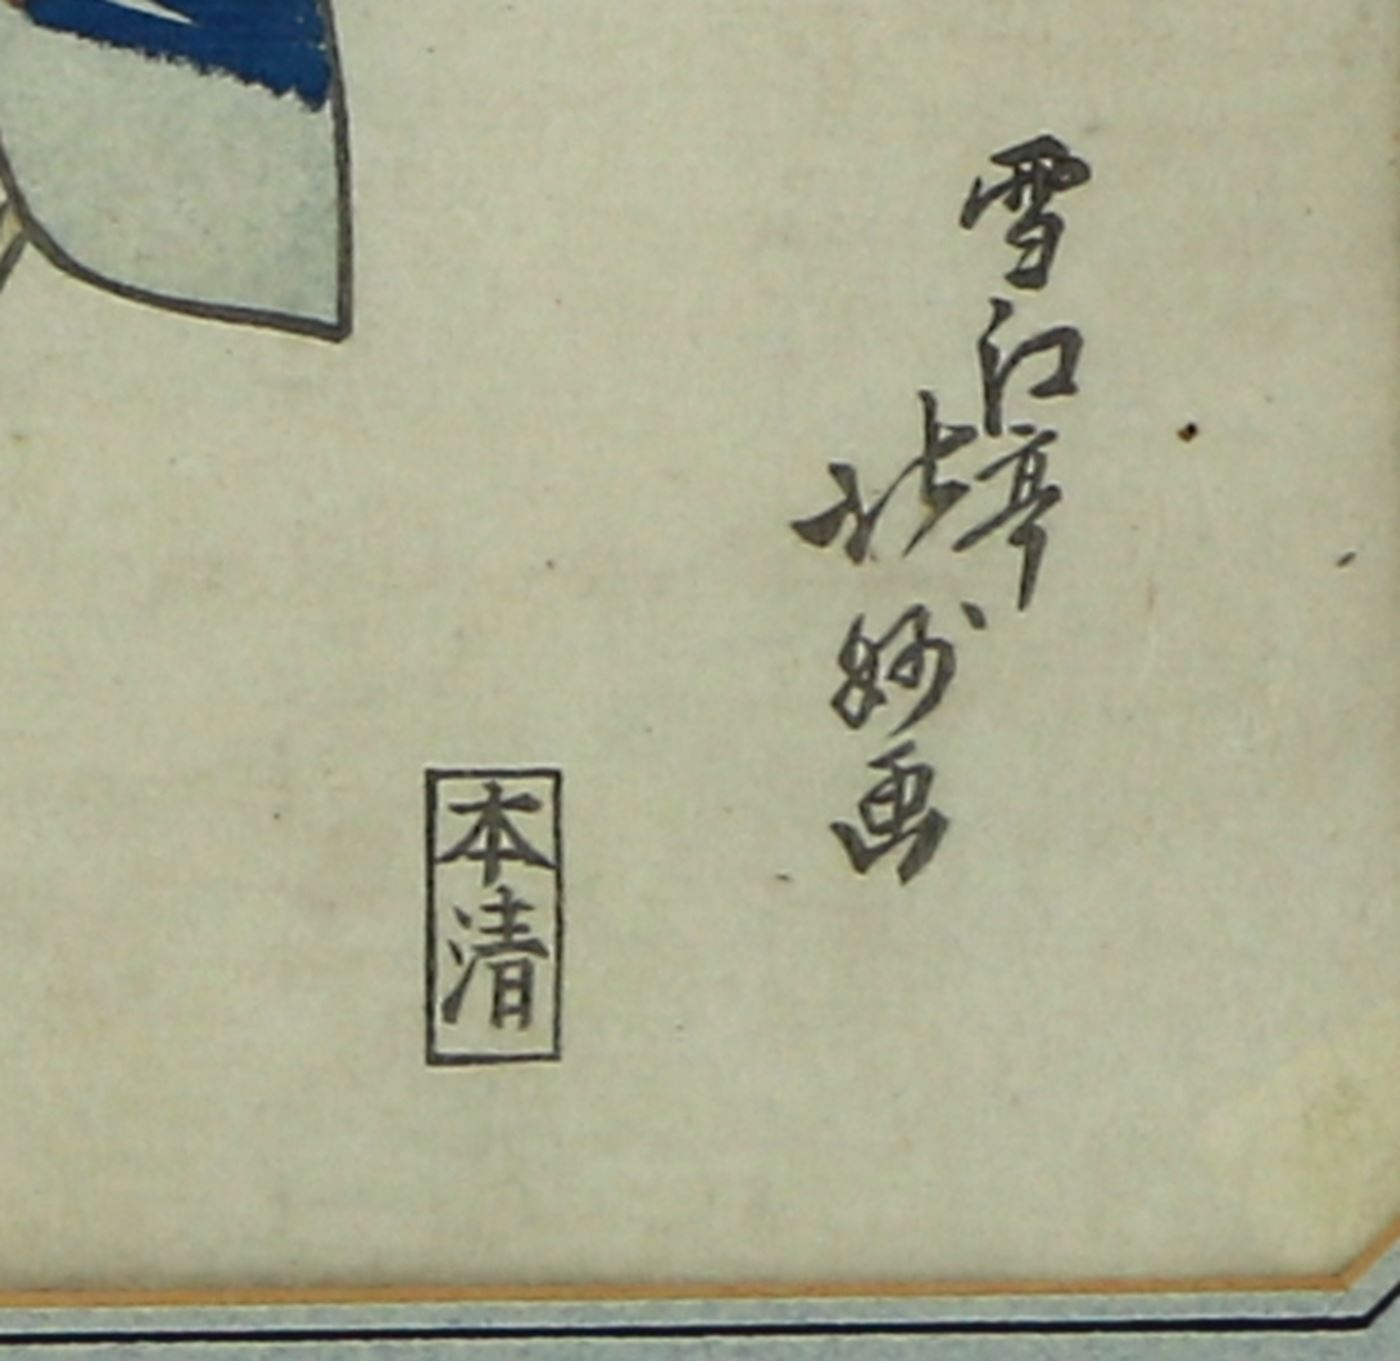 雪江亭
北妙画
本清